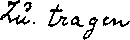 Zu. tragen